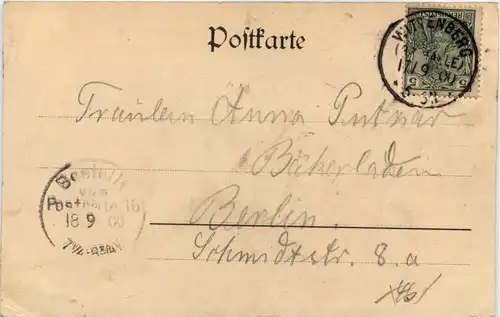 Postkarte
WITTENBERG
17/9 00
Fräulein Anna Putnar
Bäkerladen
Berlin.
Schmidtstr. 8. a
Bestellt
vom
Postamte 16
18 9 00